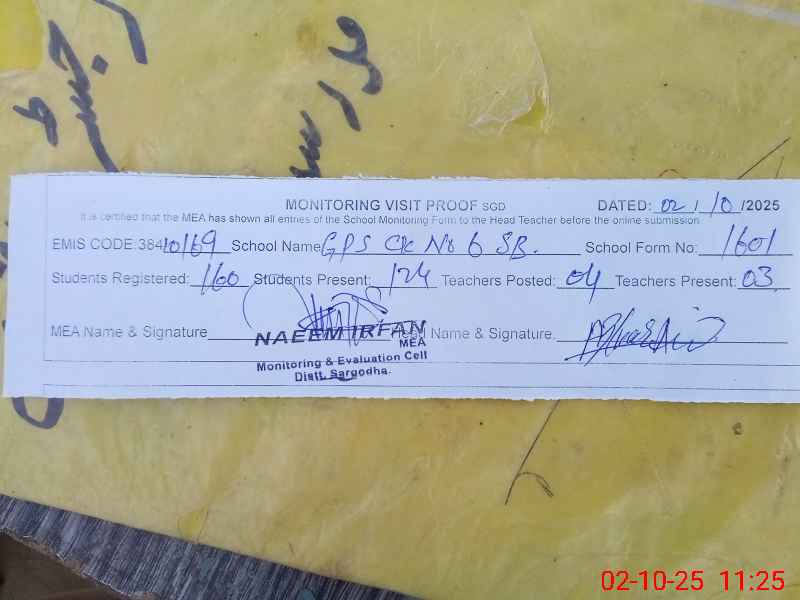 MONITORING VISIT PROOF SGD DATED: 02/10/2025
It is certified that the MEA has shown all entries of the School Monitoring Form to the Head Teacher before the online submission
EMIS CODE:38410169 School Name GPS Ck No 6 SB. School Form No: 1601
Students Registered: 160 Students Present: 124 Teachers Posted: 04 Teachers Present: 03
MEA Name & Signature Name & Signature.
NAEEM IRFAN
MEA
Monitoring & Evaluation Cell
Distt. Sargodha.
02-10-25 11:25